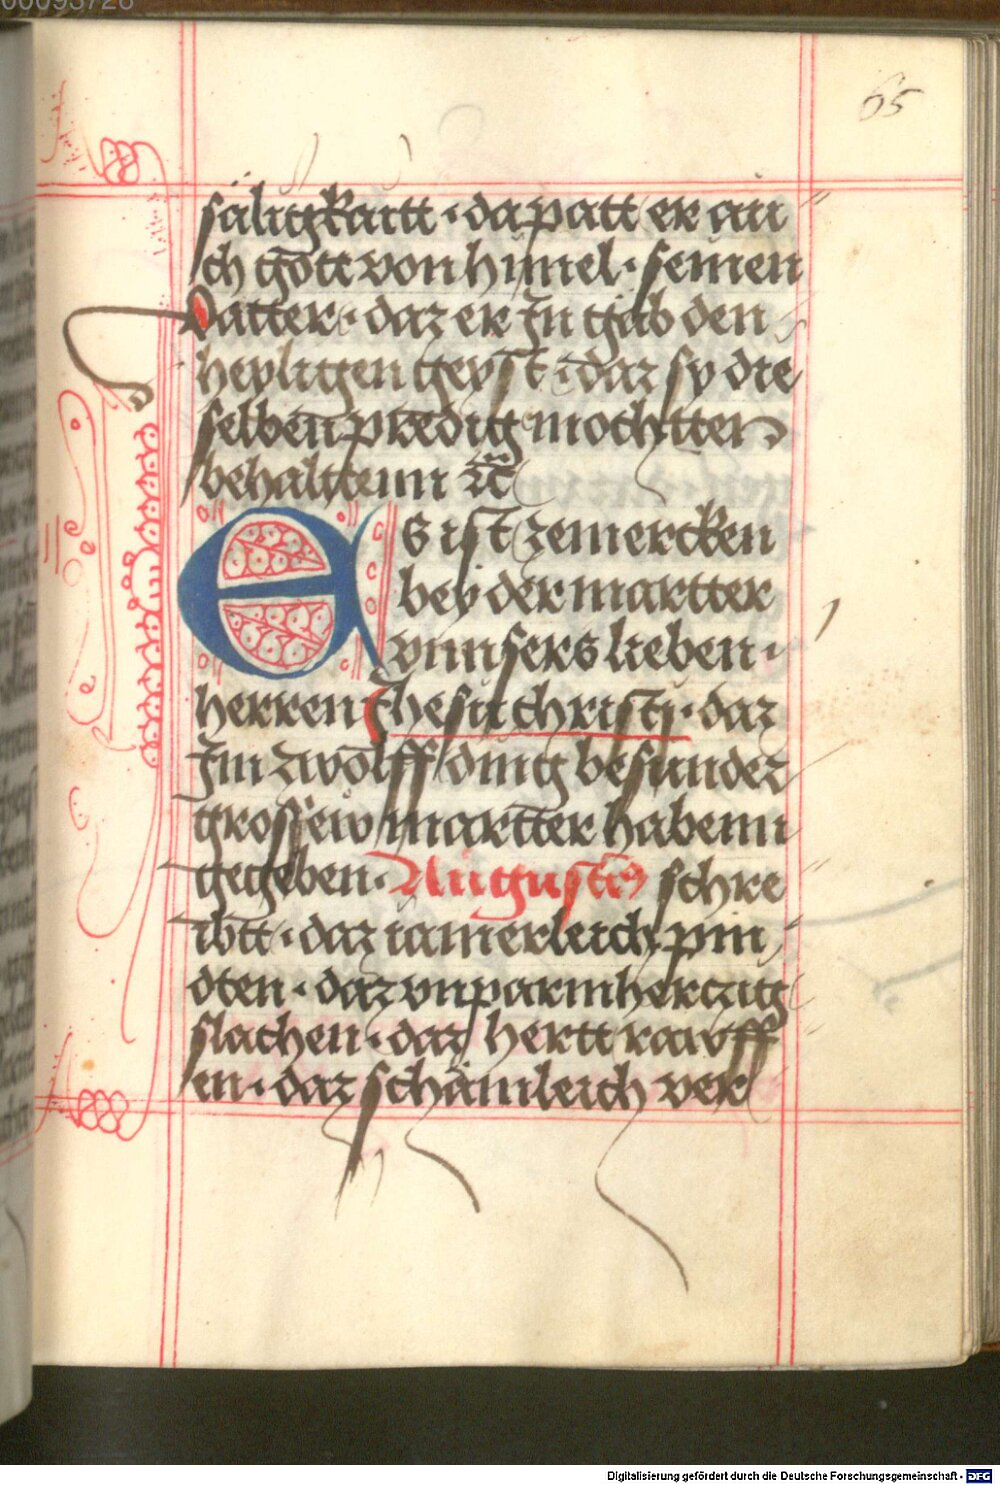 00093728
65
säligkaitt · da patt er au
ch gott von himel · seinen
vatter · daz er Jn gäb den
heyligen geyst · daz sy die
selben predig mochtten
behalttenn ꝛc̃
Es ist zemercken
bey der martter
vnnsers lieben ·
herren Jhesu christj · daz
Jm zwölff ding besunder
grossew martter habenn
gegeben · Augusti9 schre
ibtt · daz iamerleich pin
dten · daz vnparmherczig
slachen · daz hertt rawff
en · daz schämleich ver
Digitalisierung gefördert durch die Deutsche Forschungsgemeinschaft - DFG